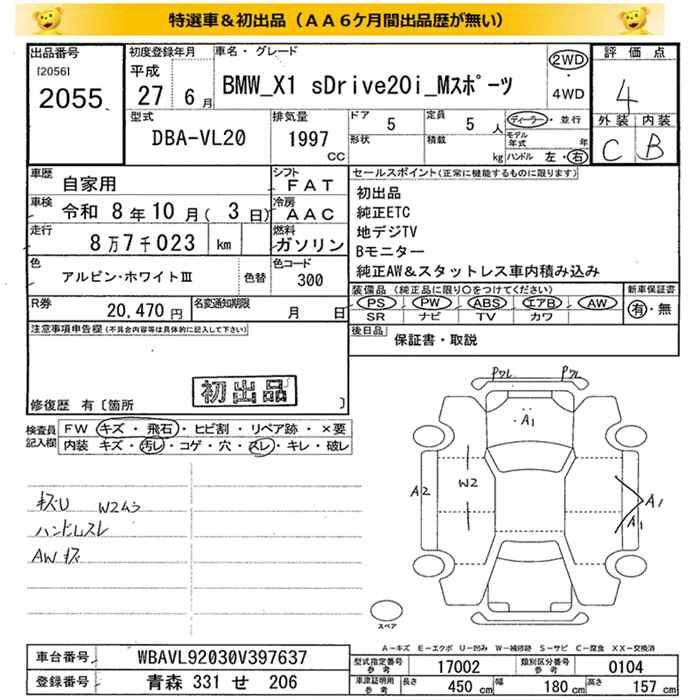 特選車＆初出品（ＡＡ６ケ月間出品歴が無い）
出品番号
[2056]
2055
初度登録年月
平成
27 6月
車名・グレード
BMW_X1 sDrive20i_Mスポーツ
2WD
・
4WD
評価点
4
外装 内装
C B
型式
DBA-VL20
排気量
1997
CC
ドア
5
定員
5 人
形状
積載
kg
ディーラー・並行
モデル年式 年
ハンドル 左・右
車歴
自家用
シフト
FAT
車検
令和 8年10月(3日)
冷房
AAC
走行
8万7千023 km
燃料
ガソリン
色
アルピン・ホワイトⅢ
色替
色コード
300
R券
20,470円
名変通知期限
月 日
セールスポイント(正常に機能するものに限ります)
初出品
純正ETC
地デジTV
Bモニター
純正AW＆スタットレス車内積み込み
装備品（純正品に限り○をつけてください）
PS・PW・ABS・エアB・AW
SR ナビ TV カワ
新車保証書
有・無
後日品
保証書・取説
注意事項申告欄(不具合内容等は具体的に記入して下さい)
初出品
修復歴 有〔箇所 〕
検査員記入欄
FW キズ・飛石・ヒビ割・リペア跡・×要
内装 キズ・汚レ・コゲ・穴・スレ・キレ・破レ
キズU W2ムラ
ハンドルスレ
AWキズ
ｱﾜﾚ ｱﾜﾚ
A1
A2
W2
A1
A1
スペア
A－キズ E－エクボ U－凹み W－補修跡 S－サビ C－腐食 XX－交換済
車台番号
WBAVL92030V397637
登録番号
青森 331 せ 206
型式指定番号
参考
17002
類別区分番号
参考
0104
車庫証明用
参考
長さ
450 cm
幅
180 cm
高さ
157 cm